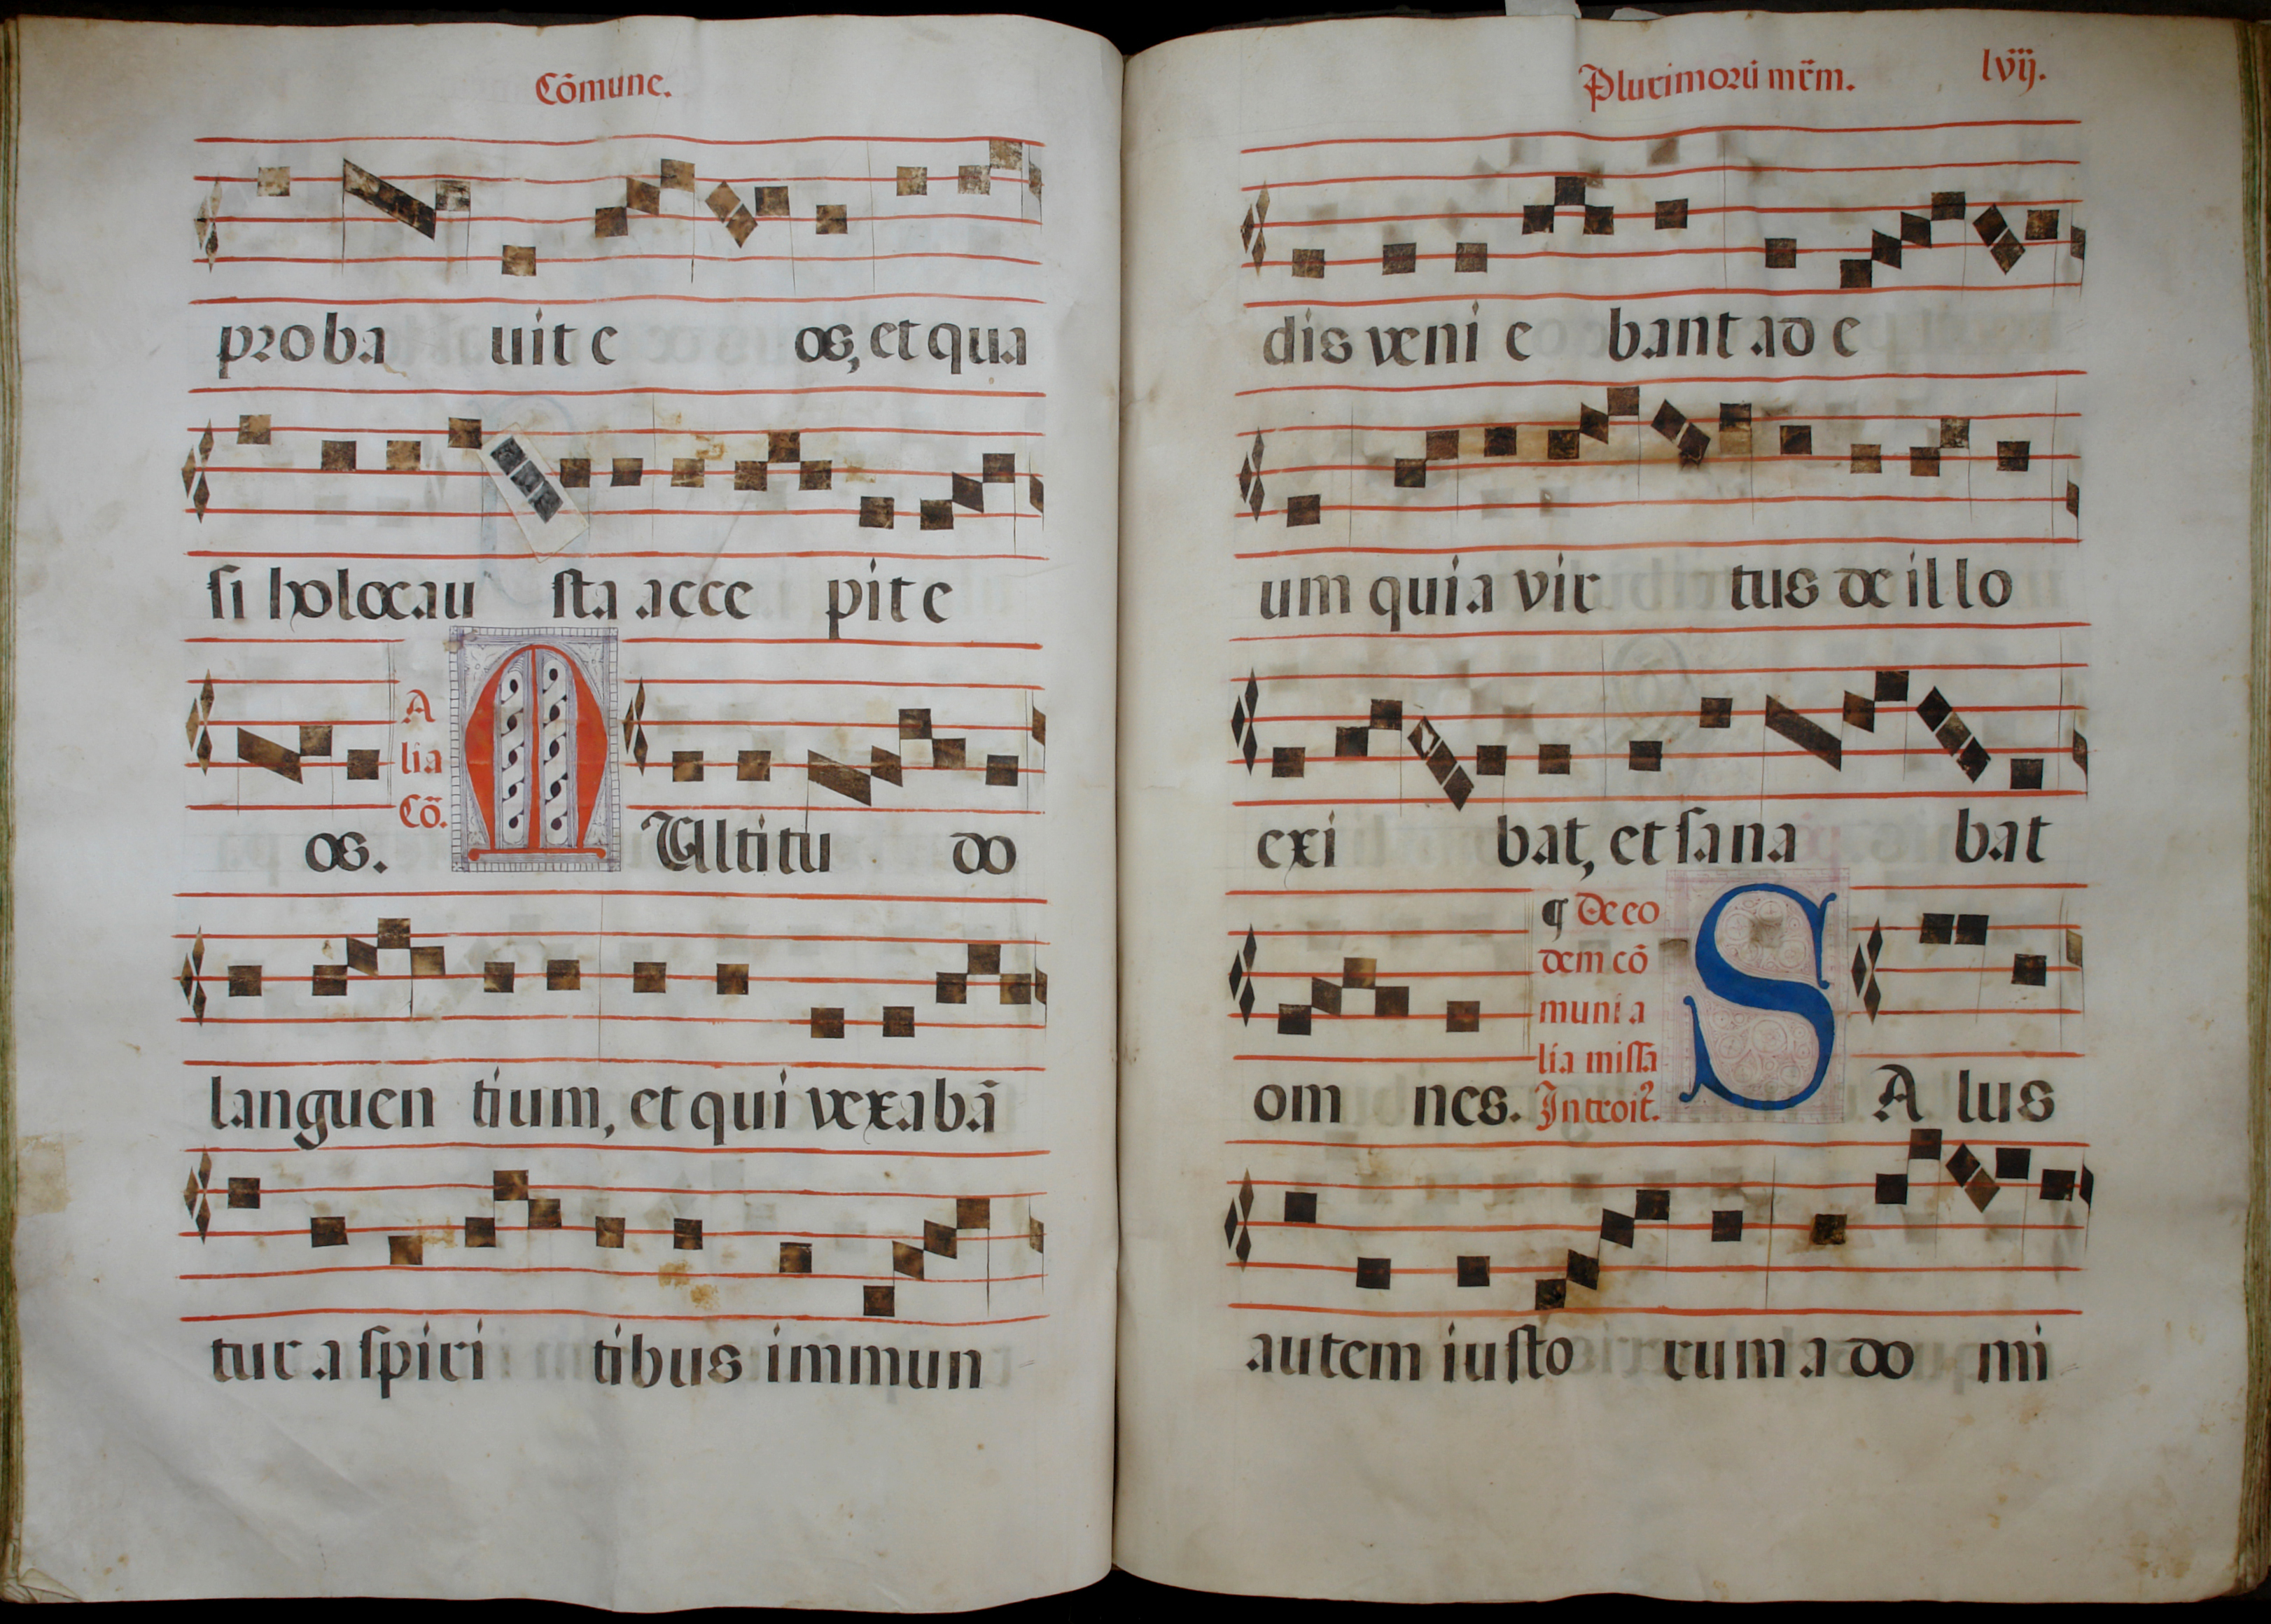 Cōmune.
proba uit e os, et qua
si holocau sta acce pit e
A
lia
Cō.
os. MUltitu do
languen tium, et qui vexabā
tur a spiri tibus immun
Plurimorū mr̄m. lvij.
dis veni e bant ad e
um quia vir tus de illo
exi bat, et sana bat
¶ De eo
dem cō
muni a
lia missa
Introit.
om nes. SA lus
autem iusto rum a do mi